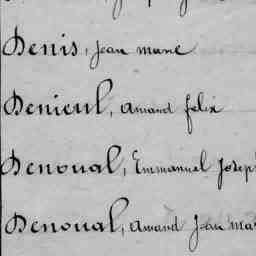 Denis, Jean marie
Denieul, Amand felix
Denoual, Emmanuel Josep
Denoual, Amand Jean Ma